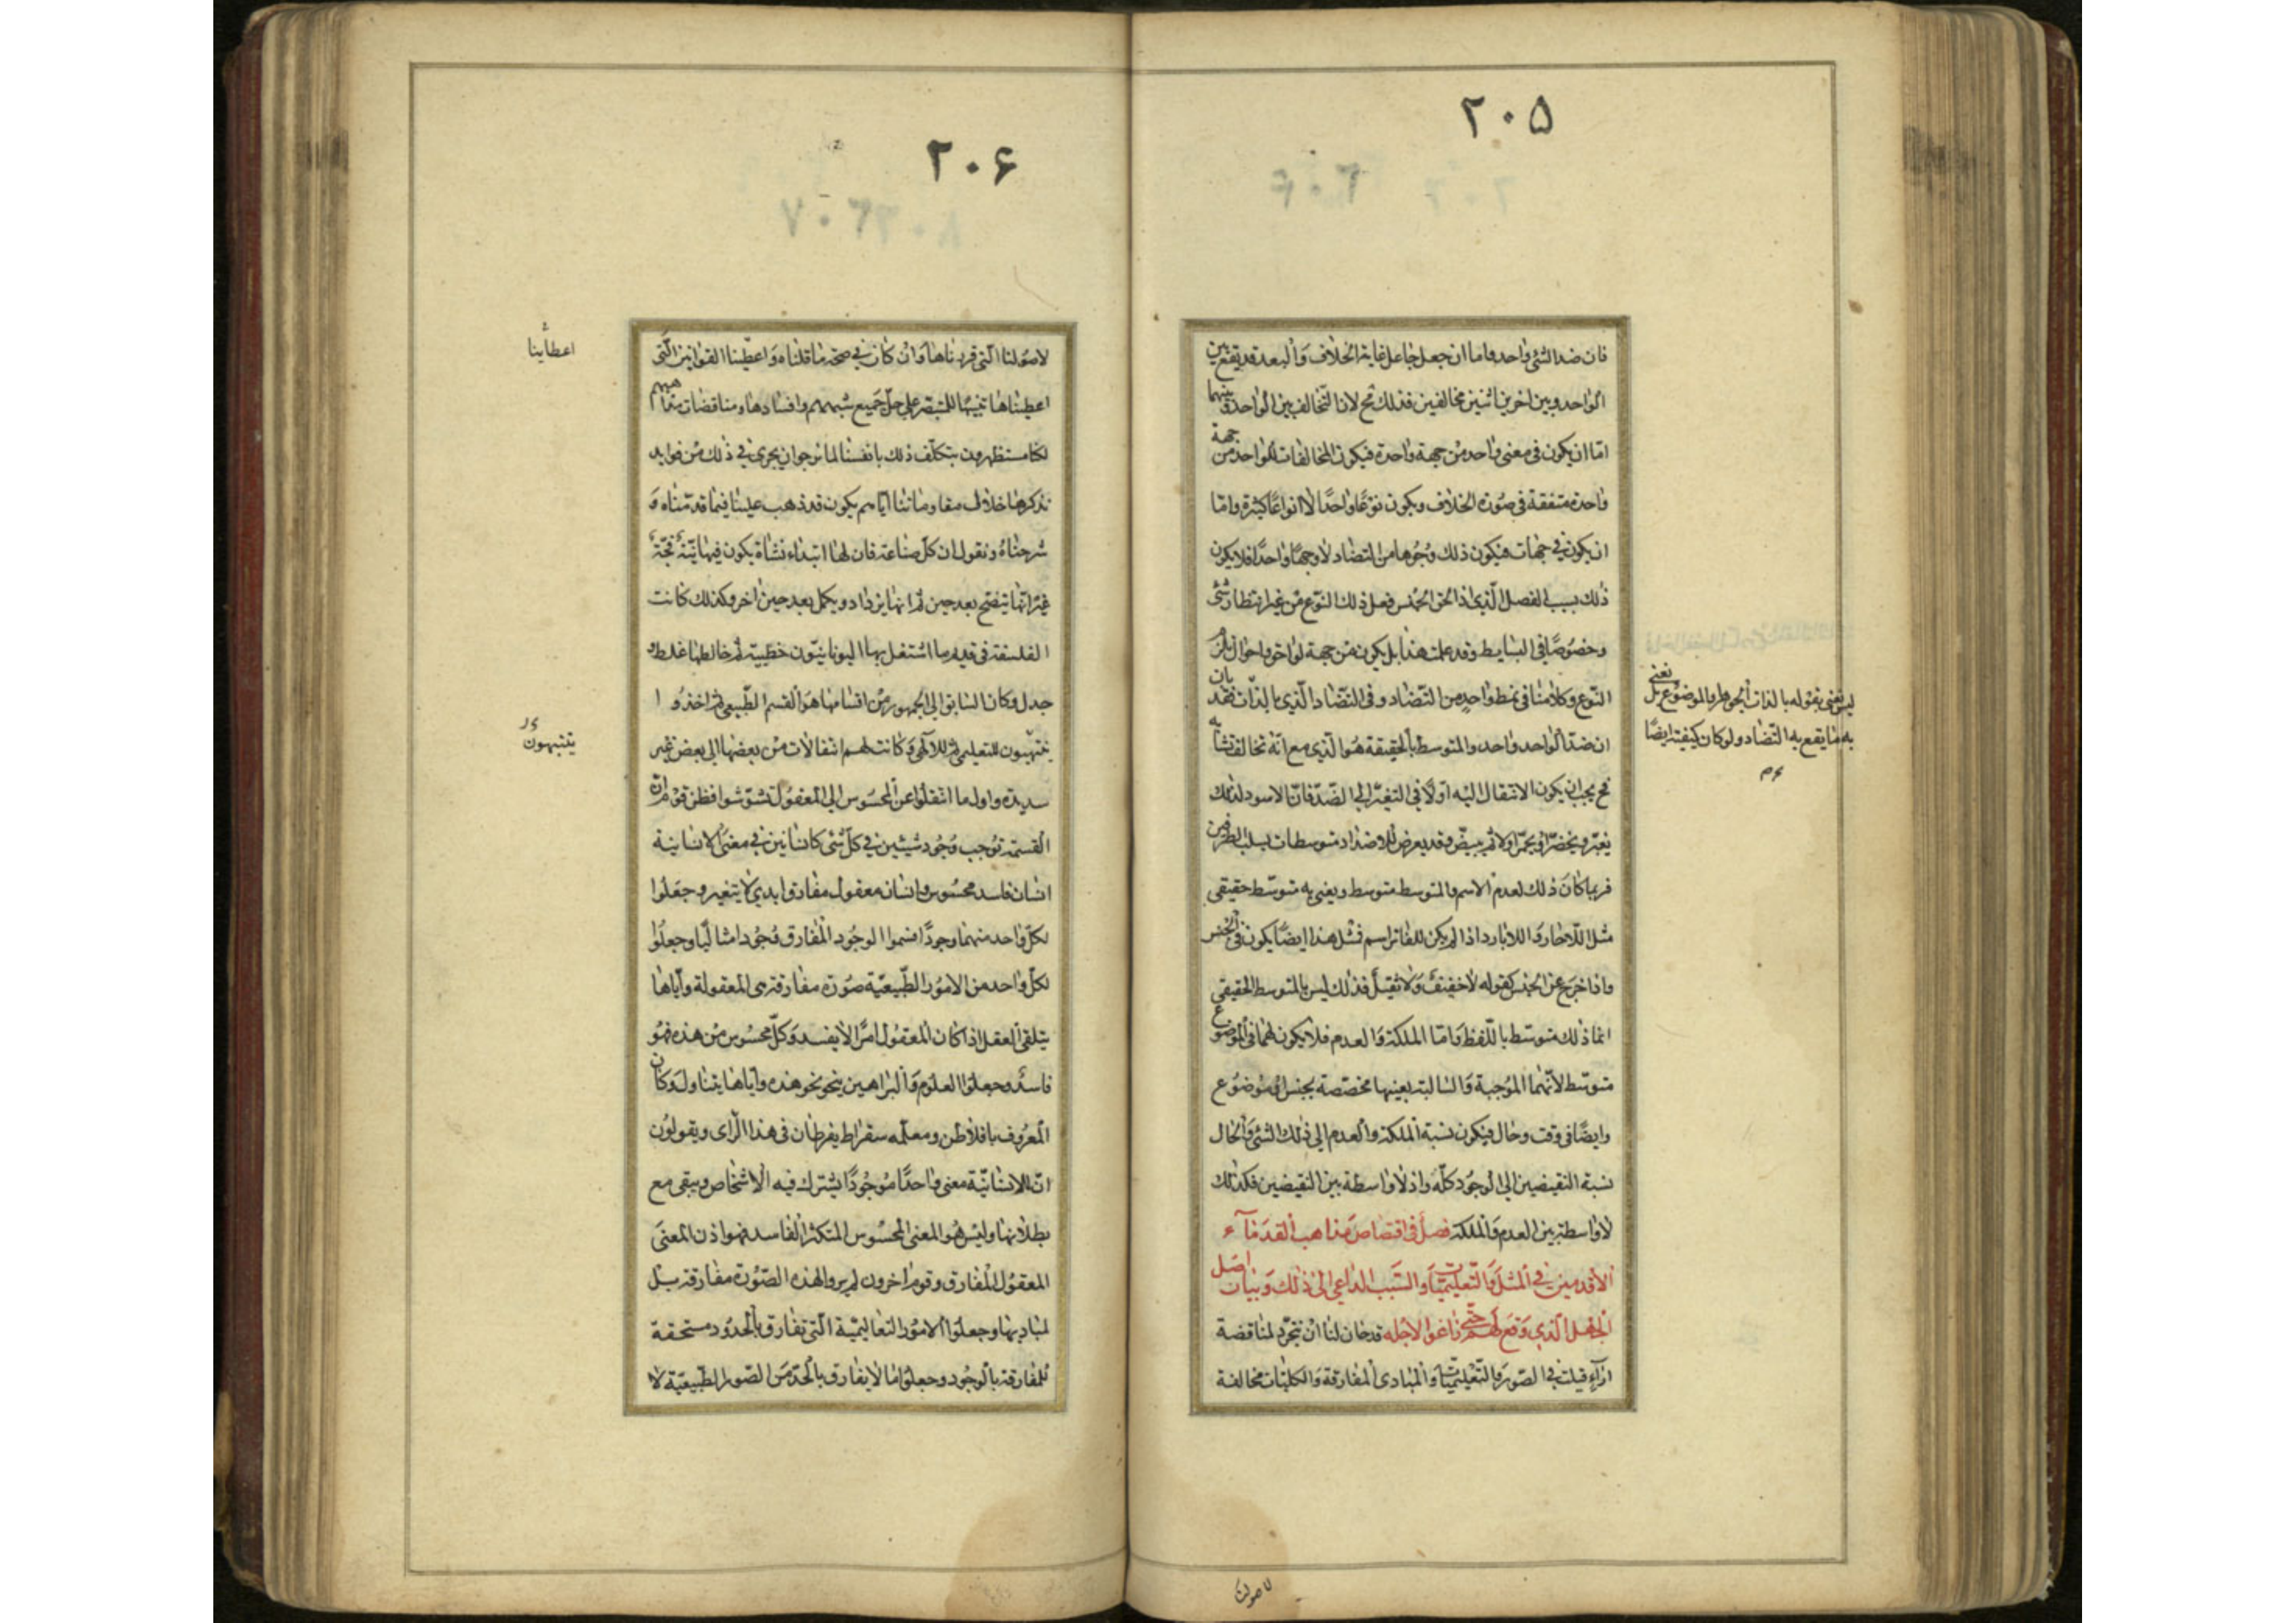 ٢٠۵
فان ضد الشئ واحد واما ان جعل جاعل غاية الخلاف والبعد قد يقع بين
الواحد وبين اخرين اثنين مخالفين فذلك مح لان التخالف بين الواحد وبينهما
اما ان يكون فى معنى واحد من جهة واحدة فيكون المخالفات للواحد من جهة
واحدة متفقة فى صورة الخلاف ويكون نوعا واحدا لا انواعا كثيرة واما
ان يكون فى جهات فيكون ذلك وجوها من التضاد لا وجها واحدا فلا يكون
ذلك بسبب الفصل الذى اذا لحق الجنس فعل ذلك النوع من غير انتظار شئ
وخصوصا فى البسايط وقد علمت هذا بل يكون من جهة لواحق واحوال تلزم
النوع وكلامنا فى نمط واحد من التضاد وفى التضاد الذى بالذات فقد بان
ان ضد الواحد واحد والمتوسط بالحقيقة هو الذى مع انه يخالف تشابه
فح يجب ان يكون الانتقال اليه اولا فى التغير الى الضد فان الاسود لذلك
يغبر ويخضر او يحمر اولا ثم يبيض وقد يعرض للاضداد متوسطات بسلب الطرفين
فربما كان ذلك لعدم الاسم والمتوسط متوسط ويعنى به متوسط حقيقى
مثل اللاحار واللابارد اذا لم يكن للفاتر اسم فمثل هذا ايضا يكون فى الجنس
واذا خرج عن الجنس كقوله لا خفيف ولا ثقيل فذلك ليس بالمتوسط الحقيقى
انما ذلك متوسط باللفظ واما الملكة والعدم فلا يكون لهما فى الموضوع
متوسط لانهما الموجبة والسالبة بعينها مخصصة بجنس او موضوع
وايضا فى وقت وحال فيكون نسبة الملكة والعدم الى ذلك الشئ والحال
نسبة النقيضين الى الوجود كله واذ لا واسطة بين النقيضين فكذلك
لا واسطة بين العدم والملكة فصل فى اقتصاص مذاهب القدماء
الاقدمين فى المثل والتعليميات والسبب الداعى الى ذلك وبيان اصل
الجهل الذى وقع لهم حتى زاغوا لاجله قد حان لنا ان نتجرد لمناقضة
اراء قيلت فى الصور والتعليميات والمبادى المفارقة والكليات مخالفة
ليس يعنى بقوله بالذات الجوهر والموضوع بل يعنى
به ما يقع به التضاد ولو كان كيفية ايضا
لاصولنا
٢٠۶
لاصولنا التى قررناها وان كان فى صحة ما قلناه واعطينا القوانين التى
اعطيناها تنبيها للمتبصر على حل جميع شبههم وافسادها ومناقضات مذاهبهم
لكنا مستظهرون بتكلف ذلك بانفسنا لما نرجو ان يجرى فى ذلك من فوايد
نذكرها خلال مقاوماتنا اياهم يكون قد ذهب علينا فيما قدمناه و
شرحناه ونقول ان كل صناعة فان لها ابتداء نشاة يكون فيها نية فجة
غير انها تنضج بعد حين ثم انها يزداد ويكمل بعد حين اخر وكذلك كانت
الفلسفة فى قديم ما اشتغل بها اليونانيون خطبية ثم خالطها غلط و
جدل وكان السابق الى الجمهور من اقسامها هو القسم الطبيعى ثم اخذوا
يتنبهون للتعليمى ثم للالهى وكانت لهم انتقالات من بعضها الى بعض غير
سديدة واول ما انتقلوا عن المحسوس الى المعقول تشوشوا فظن قوم ان
القسمة توجب وجود شيئين فى كل شئ كانسانين فى معنى الانسانية
انسان فاسد محسوس وانسان معقول مفارق ابدى لا يتغير وجعلوا
لكل واحد منهما وجودا فسموا الوجود المفارق وجودا مثاليا وجعلوا
لكل واحد من الامور الطبيعية صورة مفارقة هى المعقولة واياها
يتلقى العقل اذا كان المعقول امرا لا يفسد وكل محسوس من هذه فهو
فاسد وجعلوا العلوم والبراهين ينحو نحو هذه واياها يتناول وكان
المعروف بافلاطن ومعلمه سقراط يفرطان فى هذا الراى ويقولون
ان للانسانية معنى واحدا موجودا يشترك فيه الاشخاص ويبقى مع
بطلانها وليس هو المعنى المحسوس المتكثر الفاسد فهو اذن المعنى
المعقول المفارق وقوم اخرون لم يروا لهذه الصورة مفارقة بل
لمباديها وجعلوا الامور التعاليمية التى تفارق بالحدود مستحقة
للمفارقة بالوجود وجعلوا ما لا يفارق بالحد من الصور الطبيعية لا
اعطاينا
يتنبهون